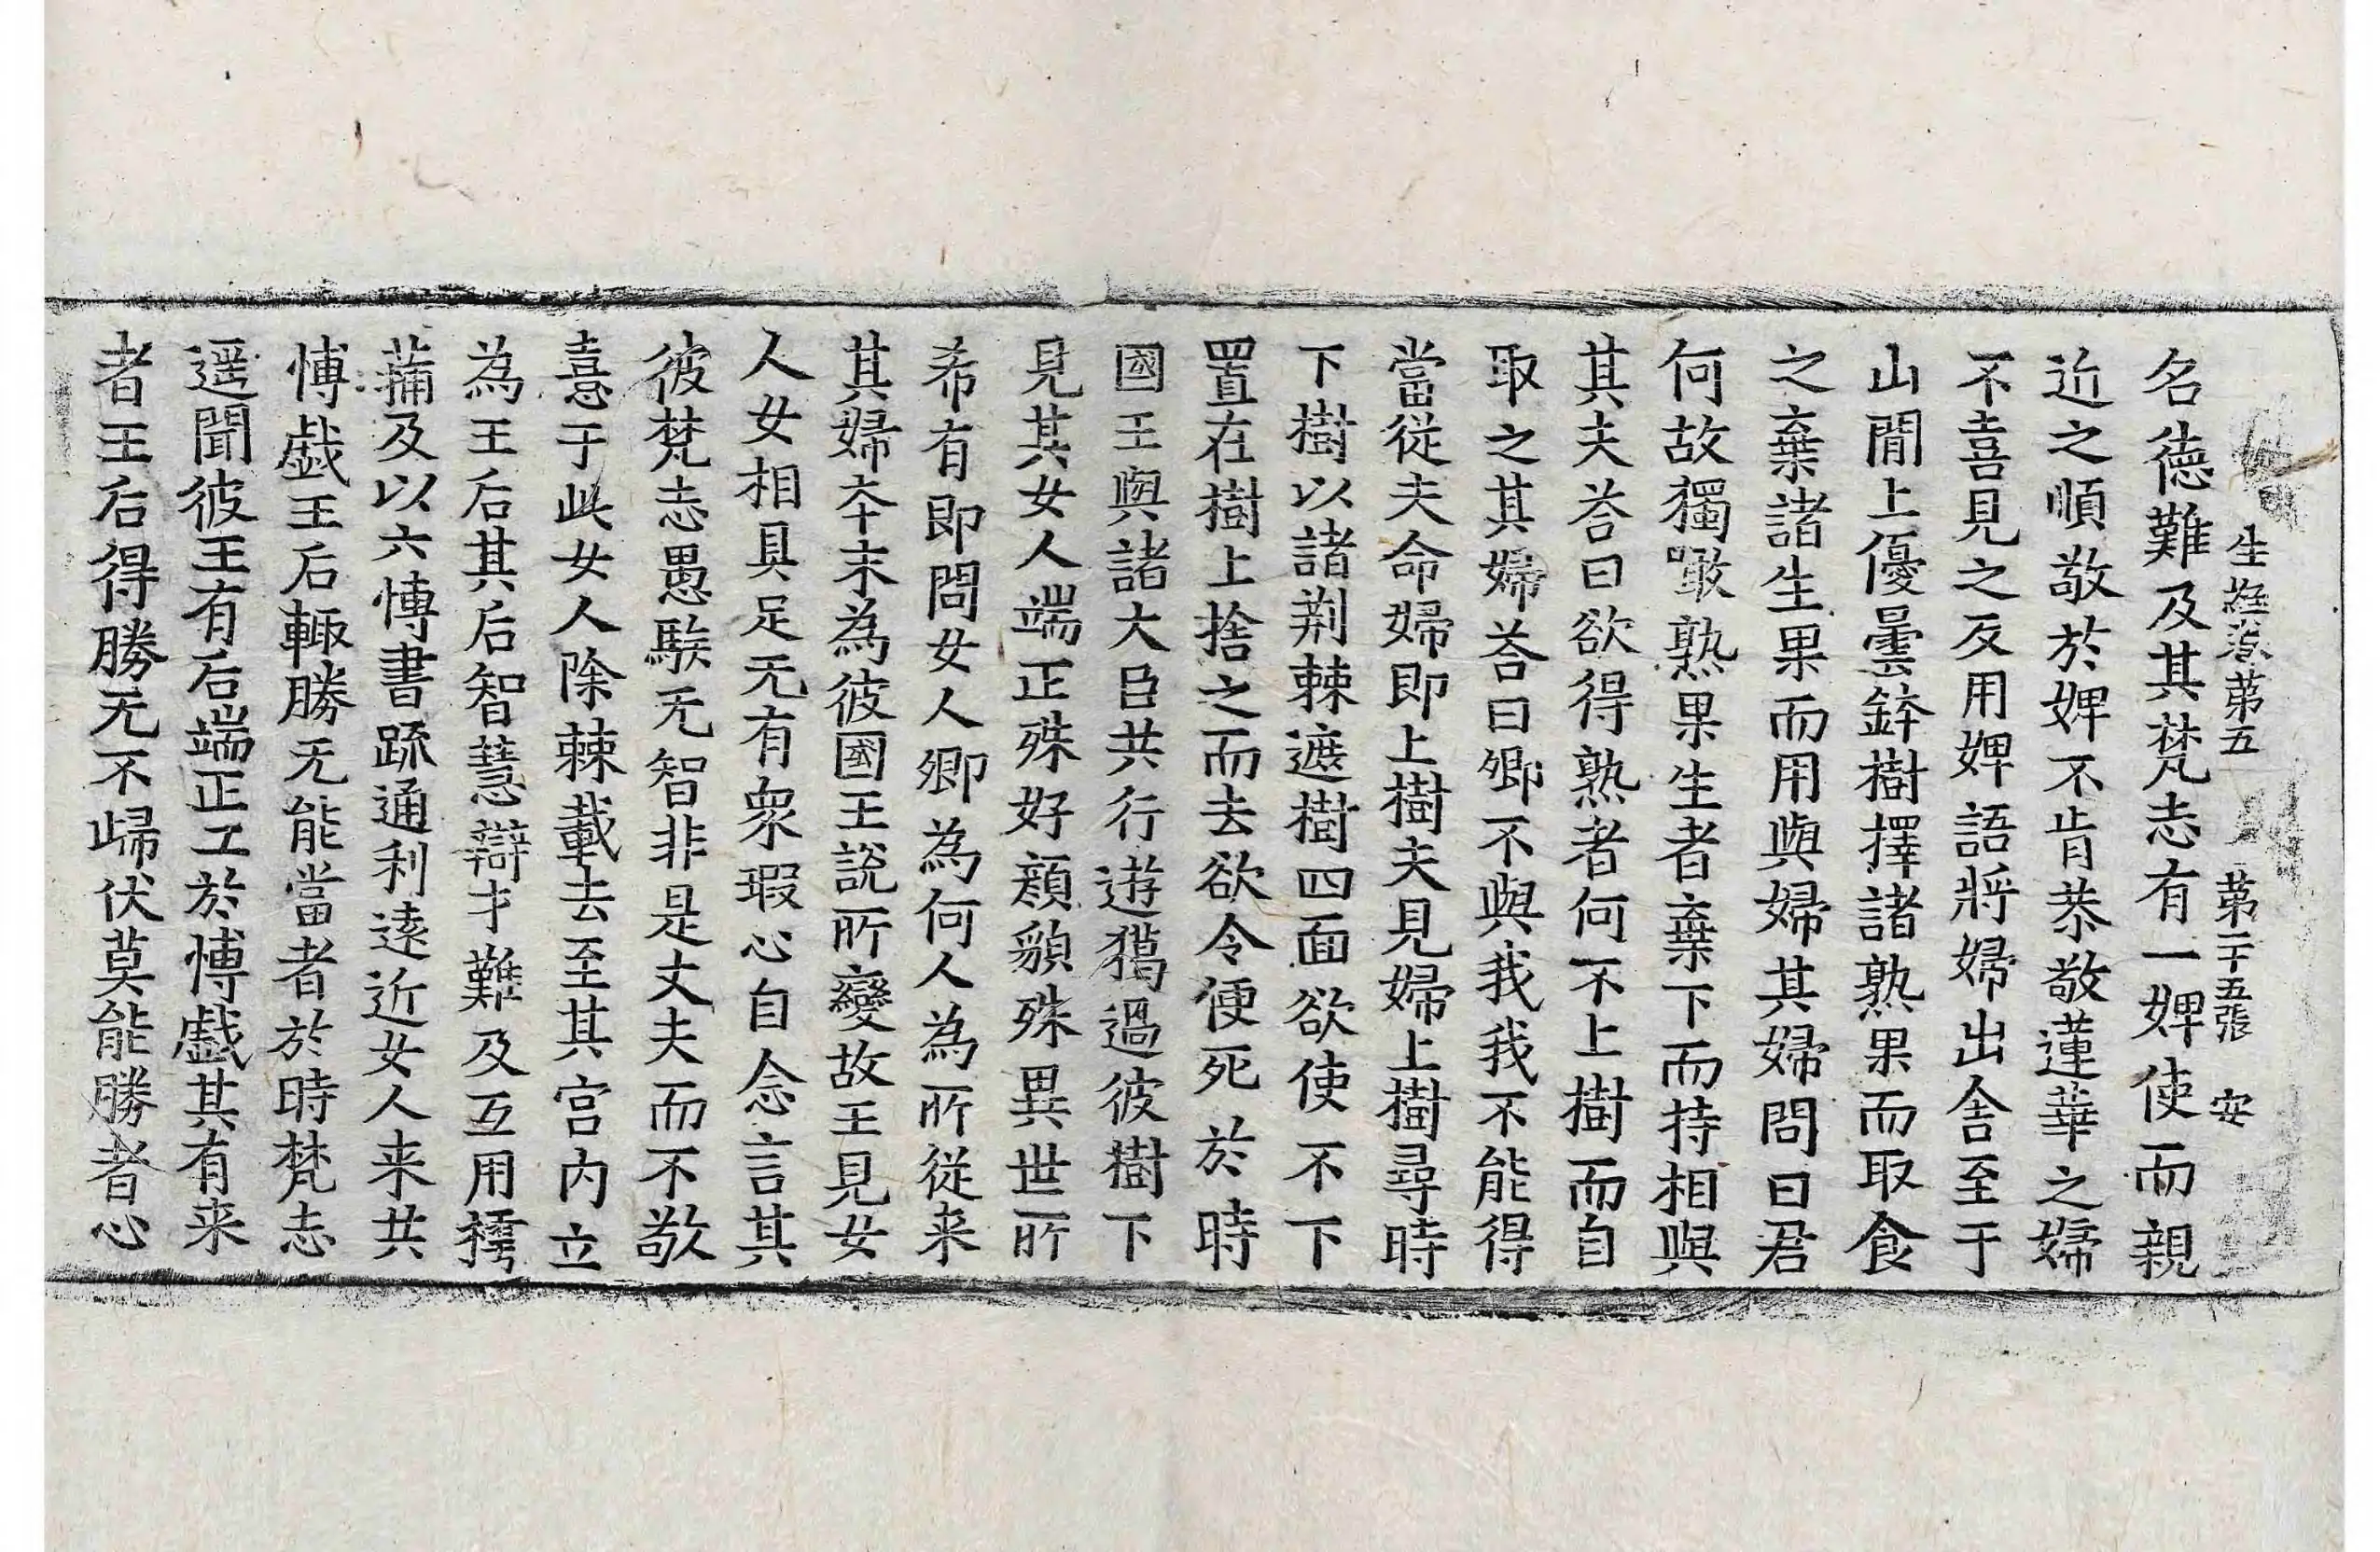 生經卷第五 第二十五張 安
名德難及其梵志有一婢使而親
近之順敬於婢不肯恭敬蓮華之婦
不喜見之反用婢語將婦出舍至于
山閒上優曇鉢樹擇諸熟果而取食
之棄諸生果而用與婦其婦問曰君
何故獨噉熟果生者棄下而持相與
其夫荅曰欲得熟者何不上樹而自
取之其婦荅曰卿不與我我不能得
當從夫命婦即上樹夫見婦上樹尋時
下樹以諸荆棘遮樹四面欲使不下
置在樹上捨之而去欲令便死於時
國王與諸大臣共行遊獦過彼樹下
見其女人端正殊好顔貌殊異世所
希有即問女人卿為何人為所從来
其婦夲末為彼國王說所變故王見女
人女相具足无有衆瑕心自念言其
彼梵志愚騃无智非是丈夫而不敬
憙于此女人除棘載去至其宫内立
為王后其后智慧辯才難及互用樗
蒱及以六愽書疏通利逺近女人来共
愽戲王后輙勝无能當者於時梵志
遥聞彼王有后端正工於愽戲其有来
者王后得勝无不歸伏莫能勝者心